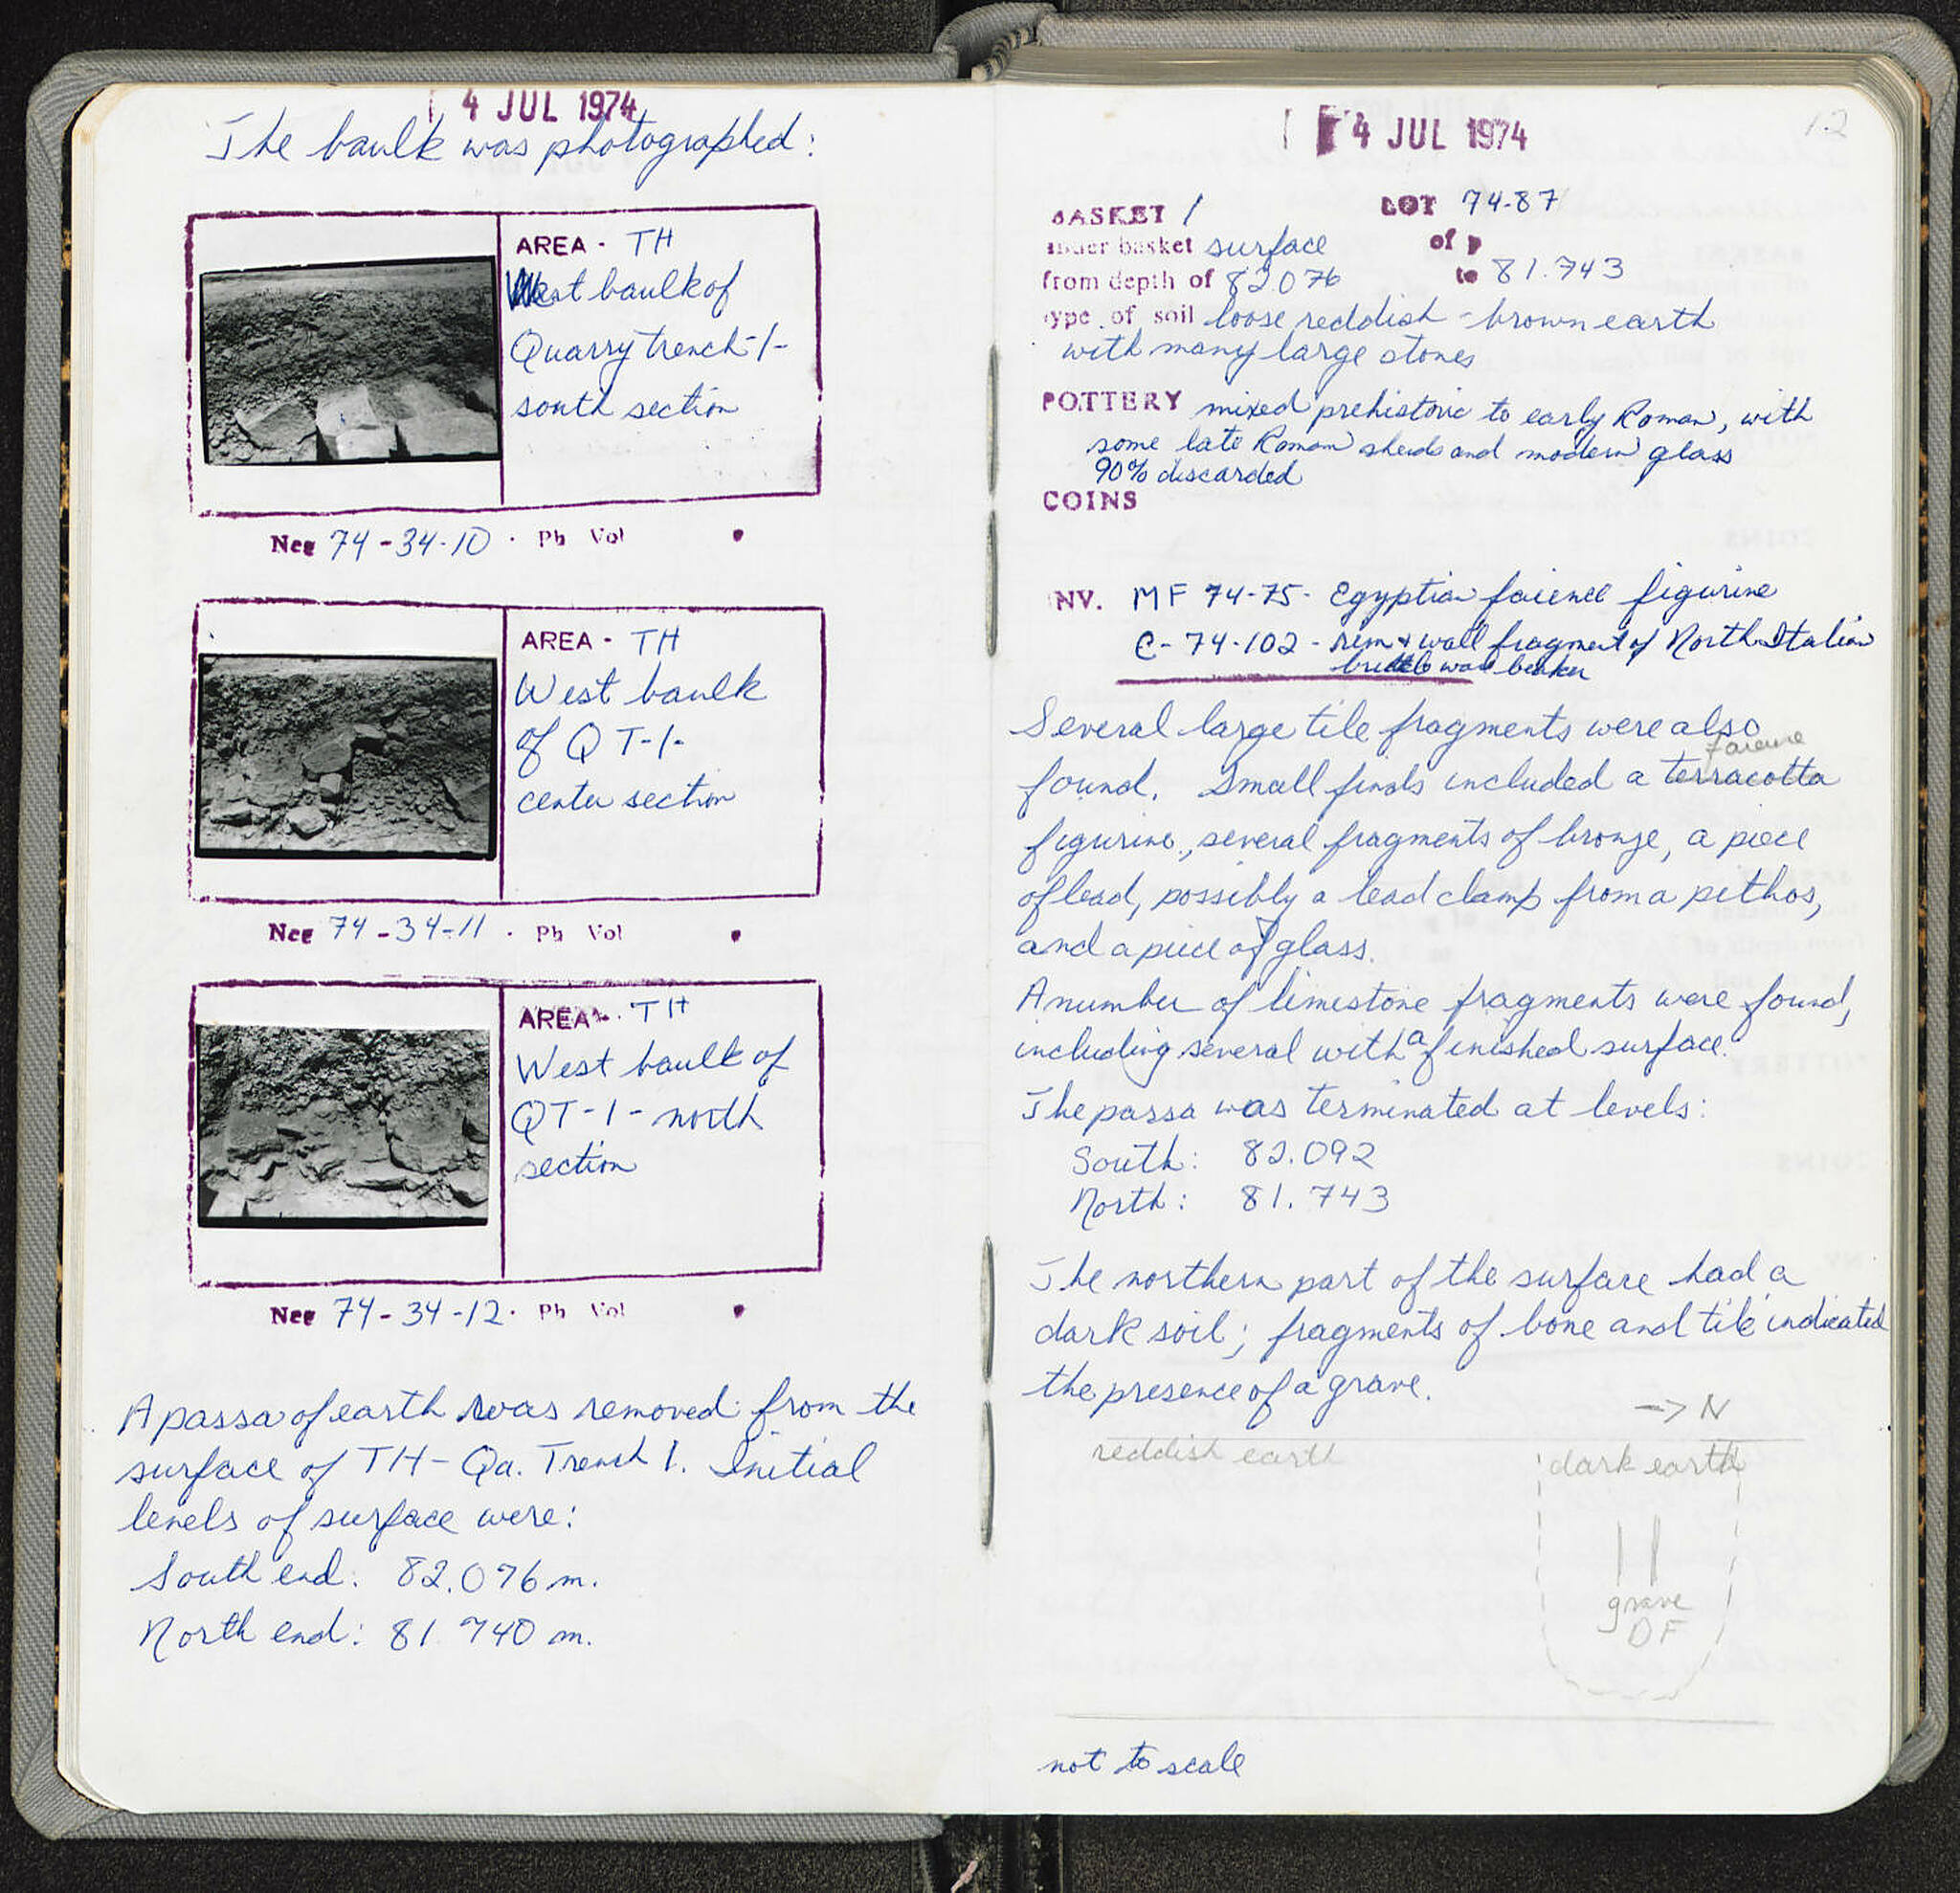 4 JUL 1974
The baulk was photographed:
AREA - TH
West baulk of
Quarry trench-1-
south section
Neg 74-34-10 . Ph Vol
AREA - TH
West baulk
of QT-1-
center section
Neg 74-34-11 . Ph Vol
AREA - TH
West baulk of
QT-1- north
section
Neg 74-34-12 . Ph Vol
A passa of earth was removed from the
surface of TH- Qa. Trench 1. Initial
levels of surface were:
South end: 82.076 m.
North end: 81.740 m.
4 JUL 1974
12
BASKET 1 LOT 74-87
under basket surface of p
from depth of 82076 to 81.743
type of soil loose reddish-brown earth
with many large stones
POTTERY mixed prehistoric to early Roman, with
some late Roman sherds and modern glass
90% discarded
COINS
INV. MF 74-75- Egyptian faience figurine
C-74-102-rim + wall fragment of North Italian
beaker
Several large tile fragments were also
faience
found. Small finds included a terracotta
figurine, several fragments of bronze, a piece
of lead, possibly a lead clamp from a pithos,
and a piece of glass.
A number of limestone fragments were found,
including several with a finished surface.
The passa was terminated at levels:
South: 82.092
North: 81.743
The northern part of the surface had a
dark soil; fragments of bone and tile indicated
the presence of a grave.
-> N
reddish earth dark earth
grave
DF
not to scale